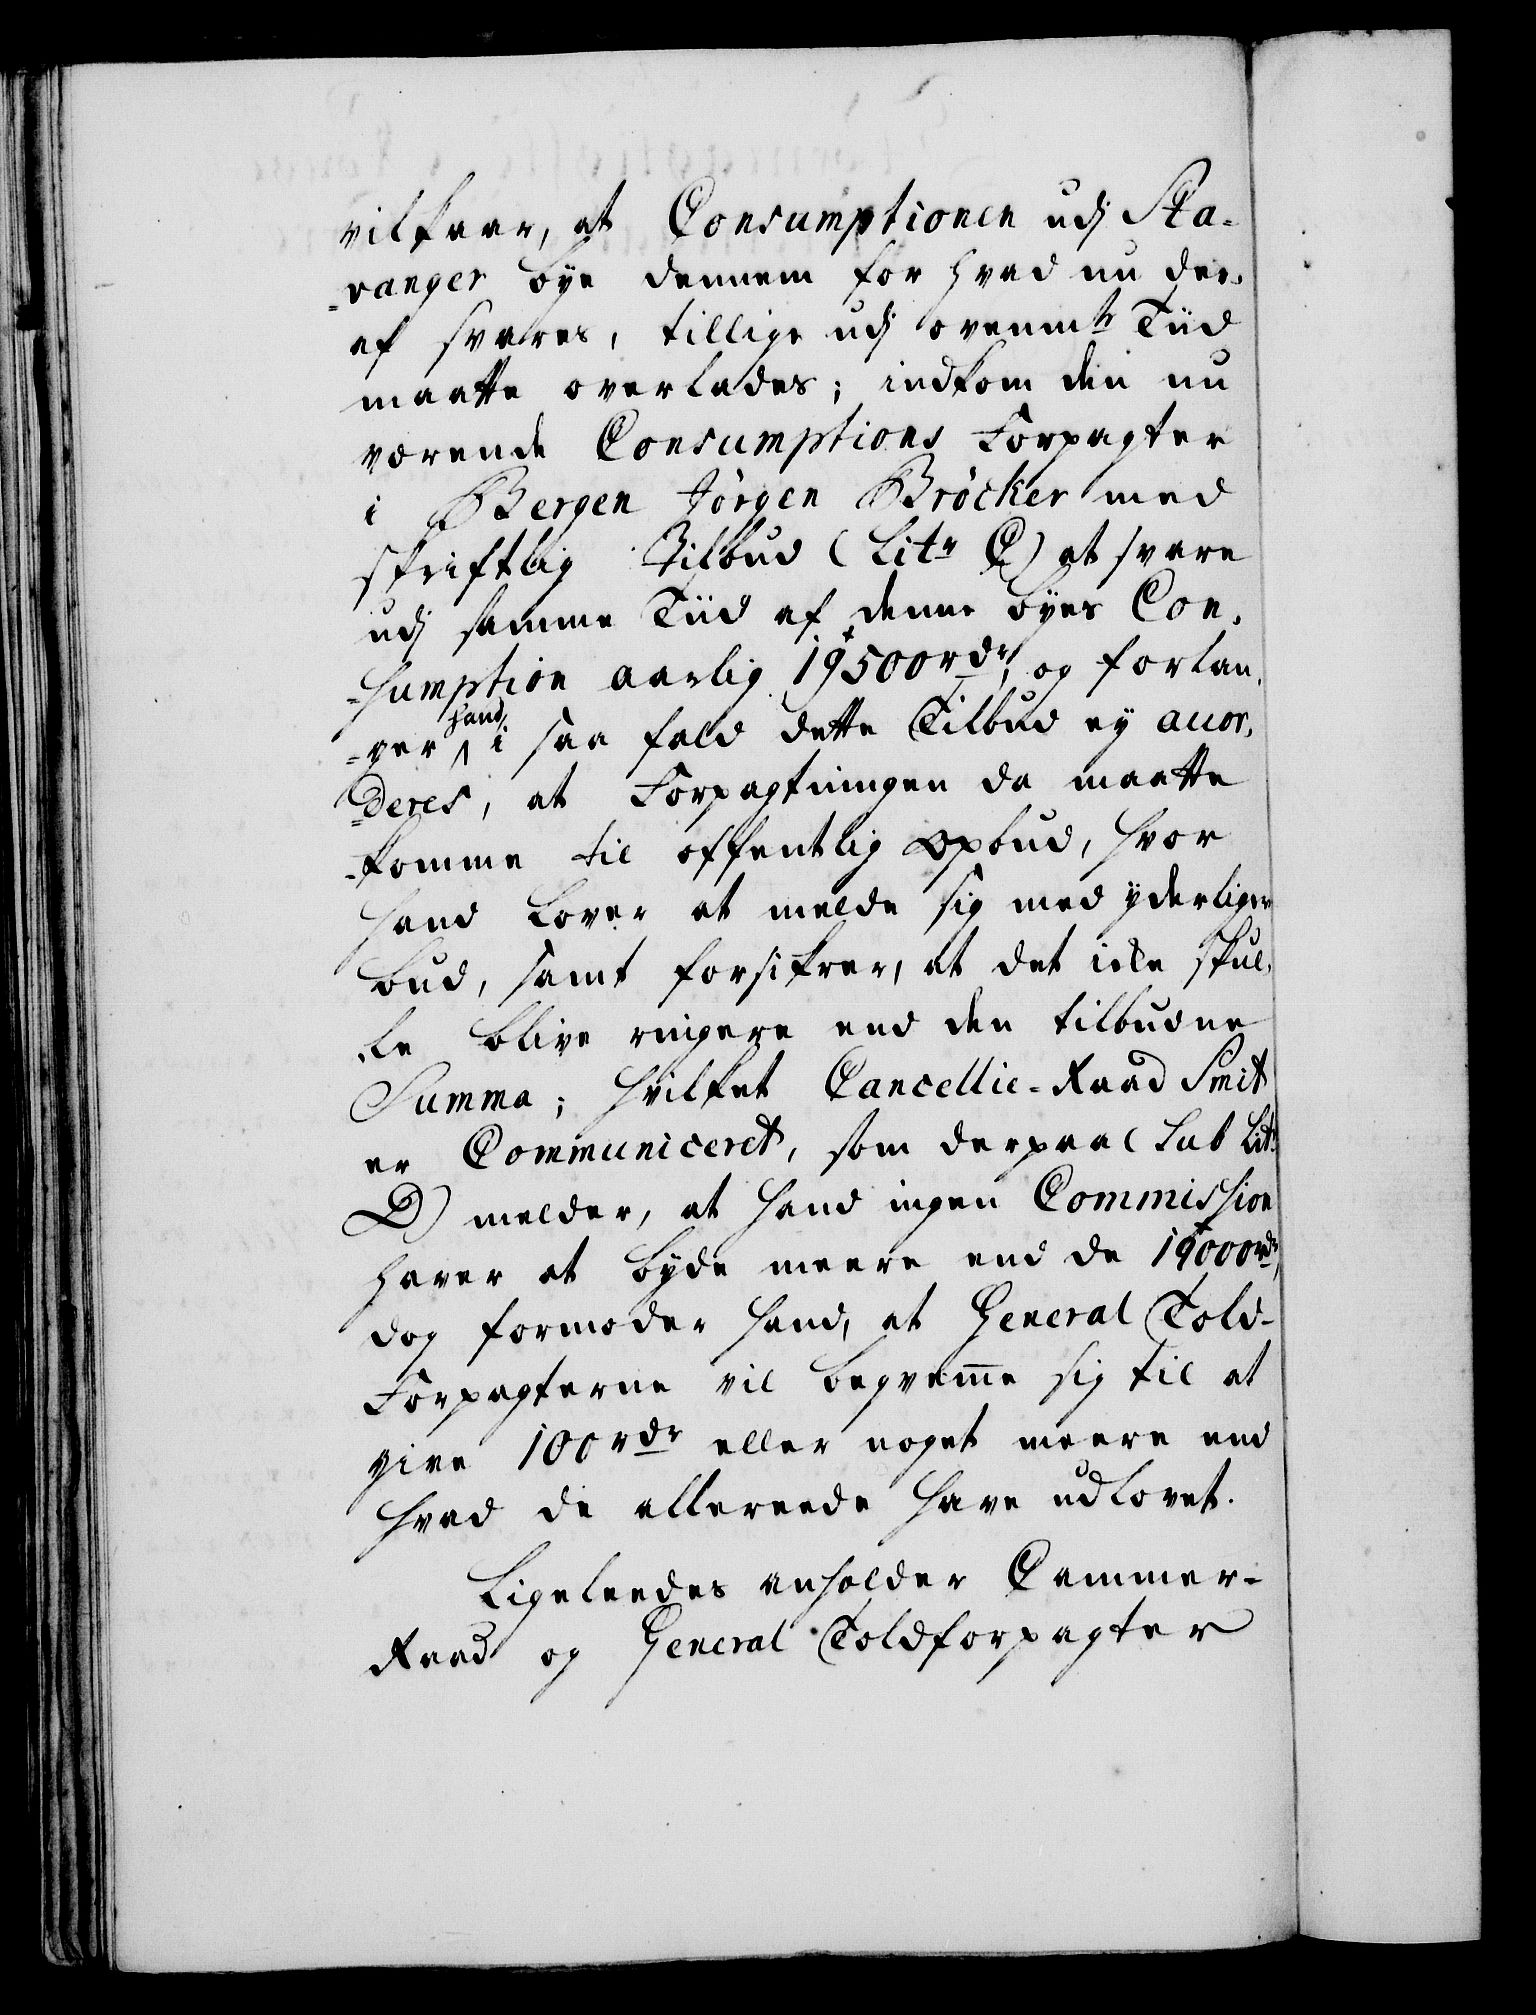 vilkaar, at Consumptionen udj Sta-
-vanger bye dennem for hvad nu der-
af svares, tillige udj ovenmte Tiid
maatte overlades; indkom den nu
værende Consumptions Forpagter
i Bergen Jörgen Bröcker med
skriftlig Tilbud (Litr C) at svare
udj samme Tiid af denne byes Con-
-sumption aarlig 19500 rdr, og forlan-
-ger hand, i saa fald dette Tilbud ey accor-
-deres, at Forpagtningen da maatte
-komme til offentlig opbud, hvor
hand lover at melde sig med yderligere
bud, samt forsikrer, at det icke skul-
le blive ringere end den tilbudne
Summa; hvilket Cancellie-Raad Smit
er Communiceret, som derpaa (sub Litr
D) melder, at hand ingen Commission
haver at byde meere end de 19000 rdr,
dog formoder hand, at General Told-
Forpagterne vil beqvem̅e sig til at
give 100 rdr eller noget meere end
hvad de allereede have udlovet.
Ligeleedes anholder Cammer-
Raad og General Toldforpagter